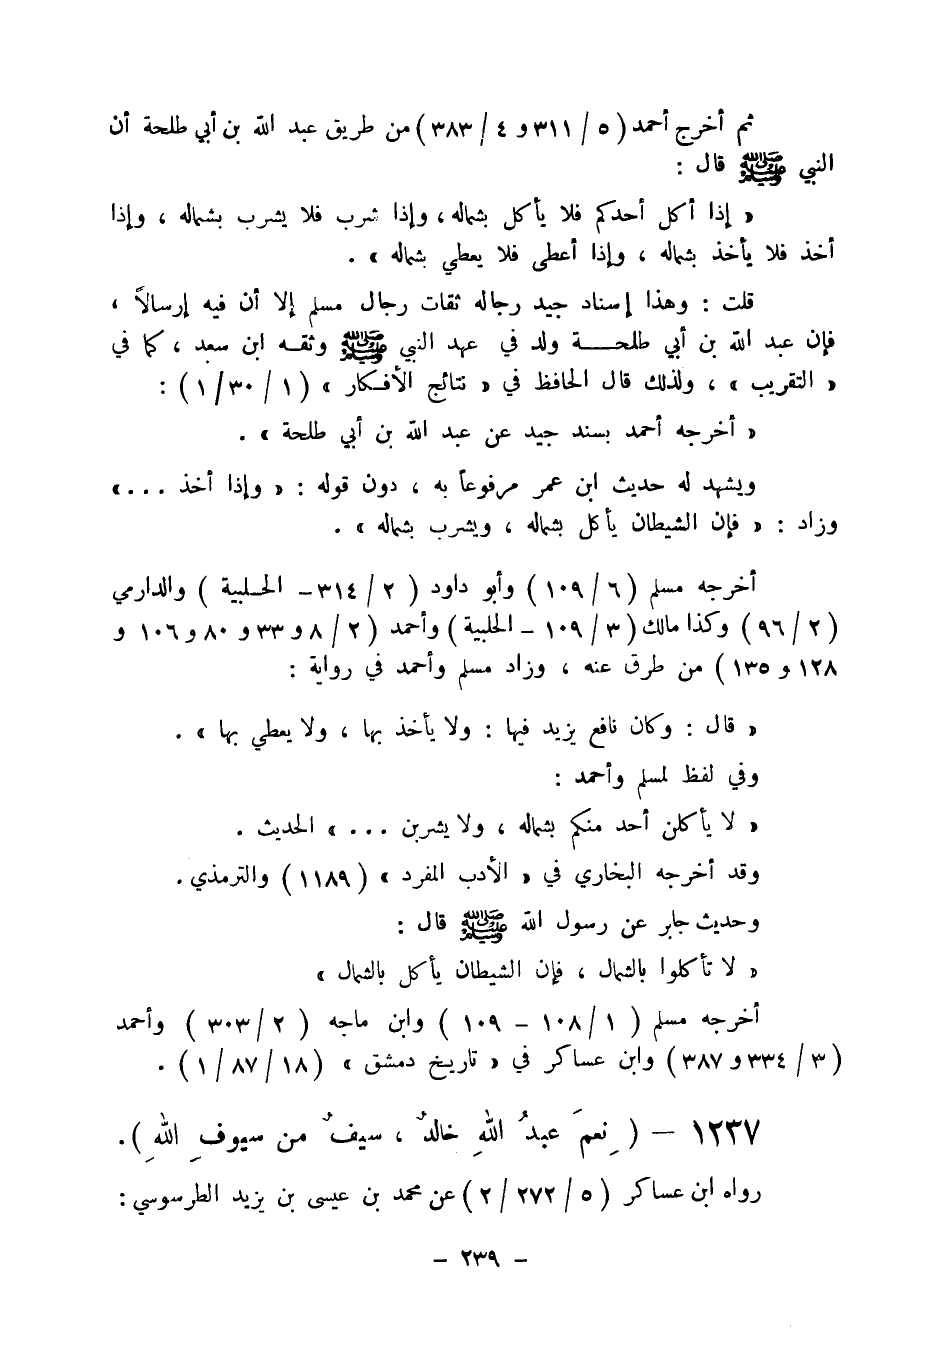 ثم أخرج أحمد ( ٥ / ٣١١ و ٤ / ٣٨٣ ) من طريق عبد الله بن أبي طلحة أن
النبي ﷺ قال :
« إذا أكل أحدكم فلا يأكل بشماله ، وإذا شرب فلا يشرب بشماله ، وإذا
أخذ فلا يأخذ بشماله ، وإذا أعطى فلا يعطي بشماله » .
قلت : وهذا إسناد جيد رجاله ثقات رجال مسلم إلا أن فيه إرسالاً ،
فإن عبد الله بن أبي طلحـــة ولد في عهد النبي ﷺ وثقـه ابن سعد ، كما في
« التقريب » ، ولذلك قال الحافظ في « نتائج الأفـكار » ( ١ / ٣٠ / ١ ) :
« أخرجه أحمد بسند جيد عن عبد الله بن أبي طلحة » .
ويشهد له حديث ابن عمر مرفوعاً به ، دون قوله : « وإذا أخذ ... »
وزاد : « فإن الشيطان يأكل بشماله ، ويشرب بشماله » .
أخرجه مسلم ( ٦ / ١٠٩ ) وأبو داود ( ٢ / ٣١٤ - الحلبية ) والدارمي
( ٢ / ٩٦ ) وكذا مالك ( ٣ / ١٠٩ - الحلبية ) وأحمد ( ٢ / ٨ و ٣٣ و ٨٠ و ١٠٦ و
١٢٨ و ١٣٥ ) من طرق عنه ، وزاد مسلم وأحمد في رواية :
« قال : وكان نافع يزيد فيها : ولا يأخذ بها ، ولا يعطي بها » .
وفي لفظ لمسلم وأحمد :
« لا يأكلن أحد منكم بشماله ، ولا يشربن ... » الحديث .
وقد أخرجه البخاري في « الأدب المفرد » ( ١١٨٩ ) والترمذي .
وحديث جابر عن رسول الله ﷺ قال :
« لا تأكلوا بالشمال ، فإن الشيطان يأكل بالشمال »
أخرجه مسلم ( ١ / ١٠٨ - ١٠٩ ) وابن ماجه ( ٢ / ٣٠٣ ) وأحمد
( ٣ / ٣٣٤ و ٣٨٧ ) وابن عساكر في « تاريخ دمشق » ( ١٨ / ٨٧ / ١ ) .
١٢٣٧ - ( نِعمَ عبدُ اللهِ خالدٌ ، سيفٌ من سيوفِ اللهِ ) .
رواه ابن عساكر ( ٥ / ٢٧٢ / ٢ ) عن محمد بن عيسى بن يزيد الطرسوسي :
- ٢٣٩ -